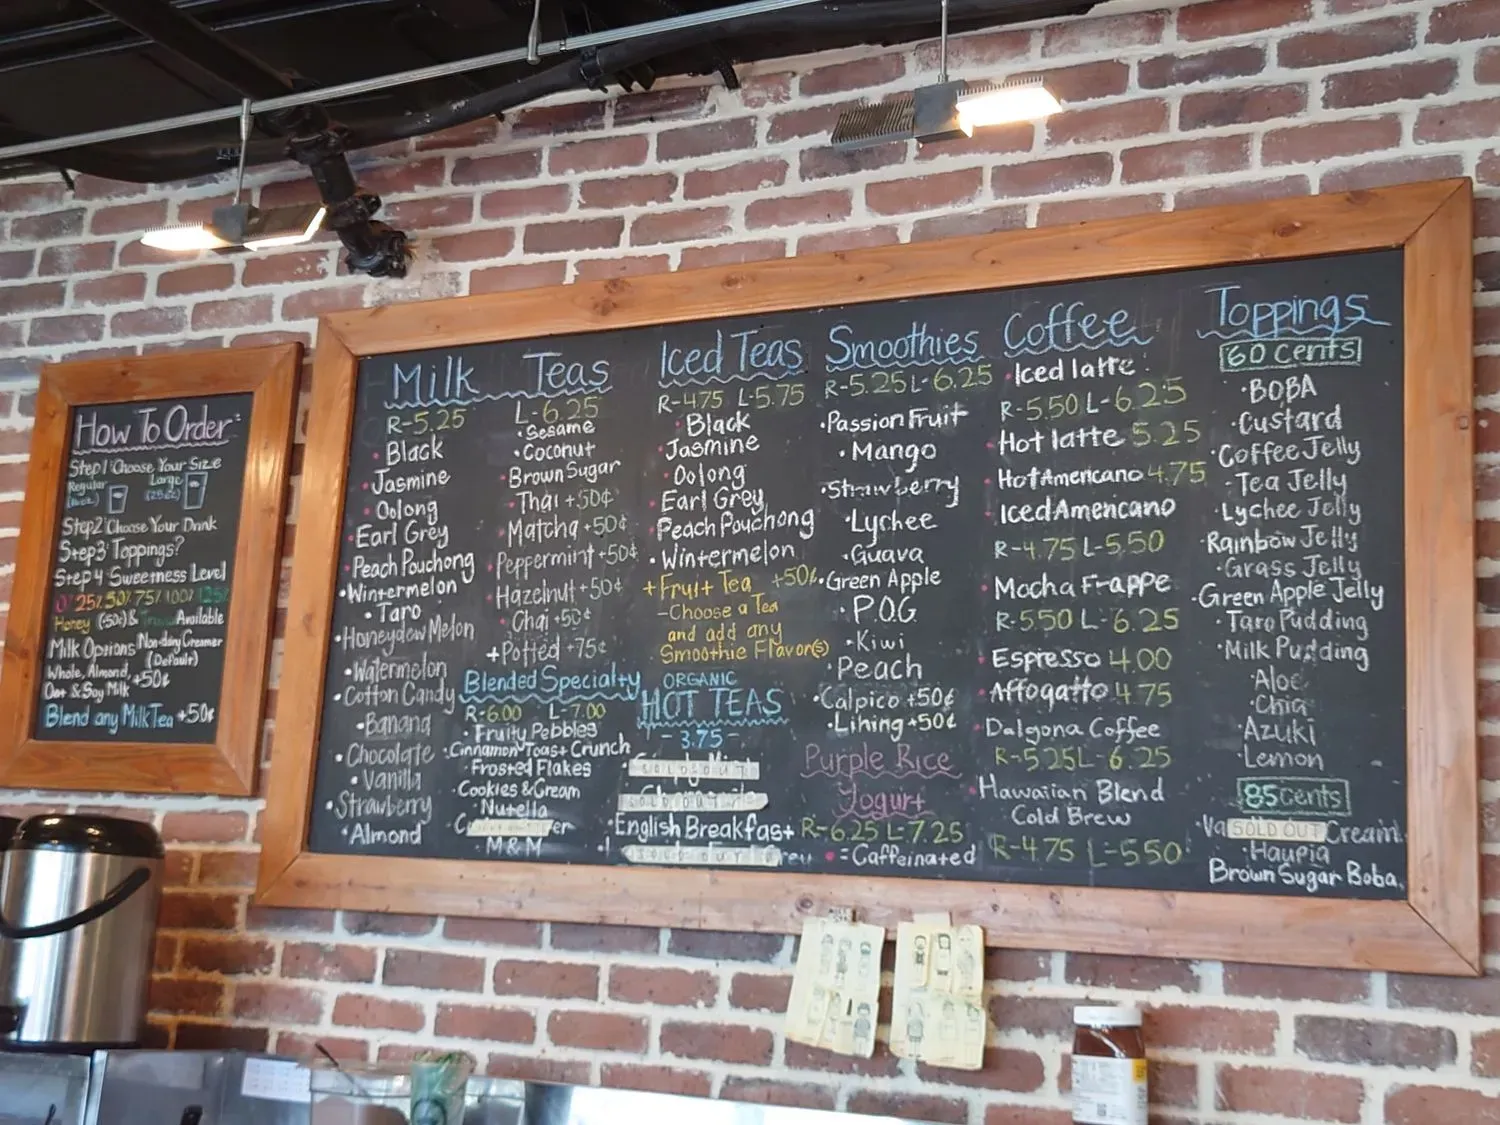 How To Order:
Step 1 Choose Your Size
Regular
Large
Step 2 Choose Your Drink
Step 3 Toppings?
Step 4 Sweetness Level
0% 25% 50% 75% 100% 125%
Honey (+50¢) & Available
Milk Options Non-dairy Creamer
(Default)
Whole, Almond,
Oat & Soy Milk +50¢
Blend any Milk Tea +50¢
Milk Teas
R-5.25 L-6.25
•Black
•Jasmine
•Oolong
•Earl Grey
•Peach Pouchong
•Wintermelon
•Taro
•Honeydew Melon
•Watermelon
•Cotton Candy
•Banana
•Chocolate
•Vanilla
•Strawberry
•Almond
•Sesame
•Coconut
•Brown Sugar
•Thai +50¢
•Matcha +50¢
•Peppermint +50¢
•Hazelnut +50¢
•Chai +50¢
+Potted +75¢
Blended Specialty
R-6.00 L-7.00
•Fruity Pebbles
•Cinnamon Toast Crunch
•Frosted Flakes
Cookies & Cream
•Nutella
•M&M
Iced Teas
R-4.75 L-5.75
•Black
•Jasmine
•Oolong
•Earl Grey
•Peach Pouchong
•Wintermelon
+Fruit Tea +50¢
-Choose a Tea
and add any
Smoothie Flavor(s)
ORGANIC
HOT TEAS
-3.75-
SOLD OUT
SOLD OUT
•English Breakfast
SOLD OUT
Smoothies
R-5.25 L-6.25
•Passion Fruit
•Mango
•Strawberry
•Lychee
•Guava
•Green Apple
•P.O.G
•Kiwi
•Peach
•Calpico +50¢
•Lihing +50¢
Purple Rice
Yogurt
R-6.25 L-7.25
•=Caffeinated
Coffee
•Iced latte
R-5.50 L-6.25
•Hot latte 5.25
•Hot Americano 4.75
•Iced Americano
R-4.75 L-5.50
•Mocha Frappe
R-5.50 L-6.25
•Espresso 4.00
•Affogatto 4.75
•Dalgona Coffee
R-5.25 L-6.25
•Hawaiian Blend
Cold Brew
R-4.75 L-5.50
Toppings
60 cents
•BOBA
•Custard
•Coffee Jelly
•Tea Jelly
•Lychee Jelly
•Rainbow Jelly
•Grass Jelly
•Green Apple Jelly
•Taro Pudding
•Milk Pudding
•Aloe
•Chia
•Azuki
•Lemon
85 cents
SOLD OUT Cream
•Haupia
Brown Sugar Boba